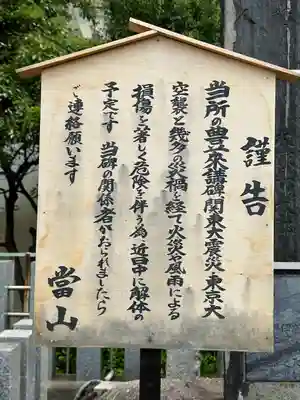 謹告
当所の豊栄講碑関東大震災東京大
空襲と幾多の災禍を経て火災や風雨による
損傷も著しく危険を伴う為近日中に解体の
予定です 当碑の関係者がおられましたら
ご連絡願います
當山